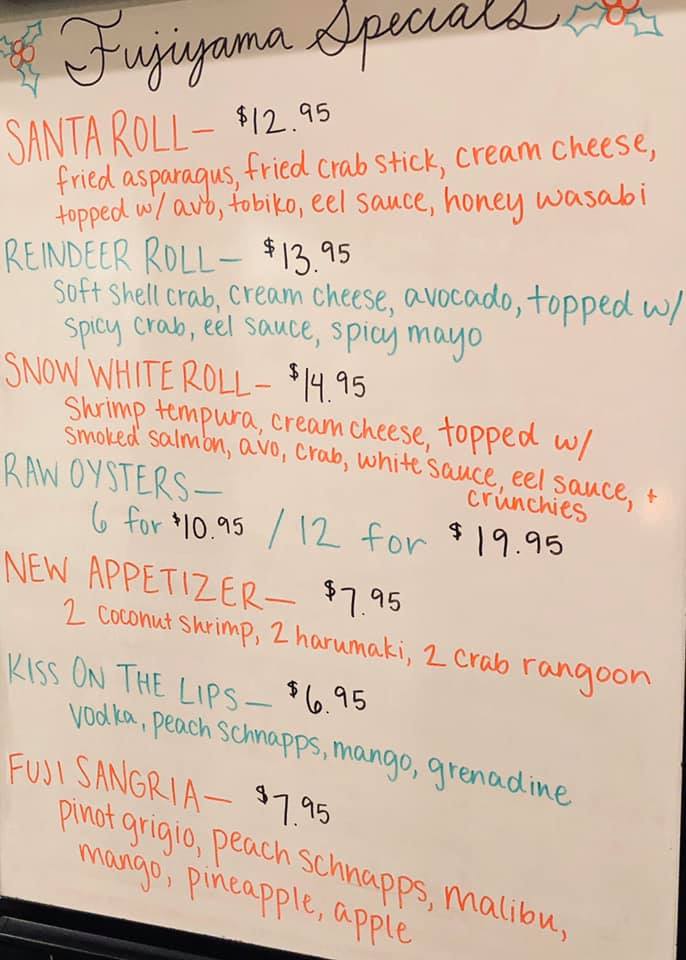 Fujiyama Specials
SANTA ROLL— $12.95
fried asparagus, fried crab stick, cream cheese,
topped w/ avo, tobiko, eel sauce, honey wasabi
REINDEER ROLL— $13.95
soft shell crab, cream cheese, avocado, topped w/
spicy crab, eel sauce, spicy mayo
SNOW WHITE ROLL— $14.95
Shrimp tempura, cream cheese, topped w/
smoked salmon, avo, crab, white sauce, eel sauce, +
crunchies
RAW OYSTERS—
6 for $10.95 / 12 for $19.95
NEW APPETIZER— $7.95
2 coconut shrimp, 2 harumaki, 2 crab rangoon
KISS ON THE LIPS— $6.95
vodka, peach schnapps, mango, grenadine
FUJI SANGRIA— $7.95
pinot grigio, peach schnapps, malibu,
mango, pineapple, apple